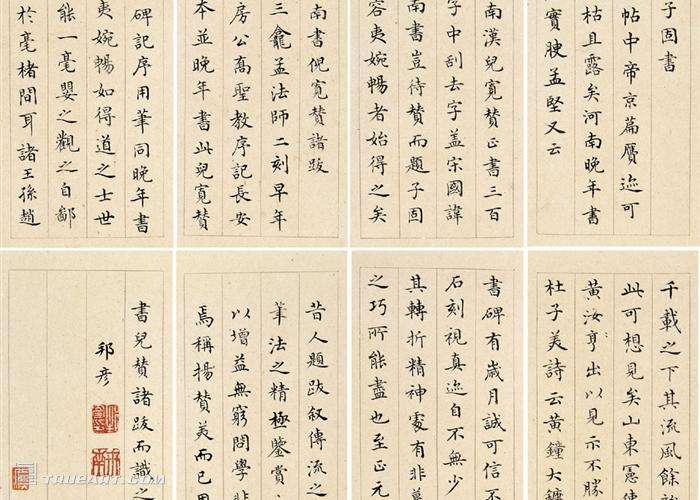 子固書
帖中帝京篇贗迹可
枯且露矣河南晚年書
實腴孟堅又云
南漢兒寬贊正書三百
字中刮去字盖宋國諱
南書豈待贊而題子固
容夷婉暢者始得之矣
南書倪寬贊諸跋
三龕孟法師二刻早年
房公高聖教序記長安
本並晚年書此兒寬贊
碑記序用筆同晚年書
夷婉暢如得道之士世
能一毫嬰之觀之自鄙
於毫楮間耳諸王孫趙
千載之下其流風餘
此可想見矣山東憲使
黃汝亨出以見示不勝
杜子美詩云黃鐘大
書碑有歲月誠可信不
石刻視真迹自不無少
其轉折精神處有非
之巧所能盡也至正元
昔人題跋叙傳流之
筆法之精極鑒賞
以增益無窮問學非
焉稱揚贊美而已
書兒贊諸跋而識之
邦彥
TRUEART.COM